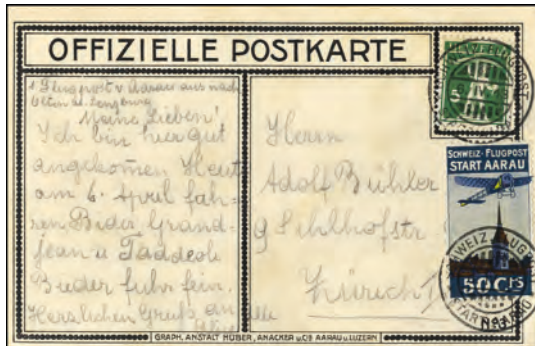 OFFIZIELLE POSTKARTE
1 Flugpost v Aarau aus nach
Olten u. Lenzburg
Meine Lieben!
Ich bin hier gut
angekommen Heut
am 6. April fah-
ren Bider, Grand-
jean u Taddeoli
Bieder fuhr fein.
Herzlichen Gruß an alle
Herrn
Adolf Bühler
9 Sihlhofstr
Zürich 1
SCHWEIZ. FLUGPOST
START AARAU
50 Cts
GRAPH. ANSTALT HUBER, ANACKER u. Cie AARAU u. LUZERN